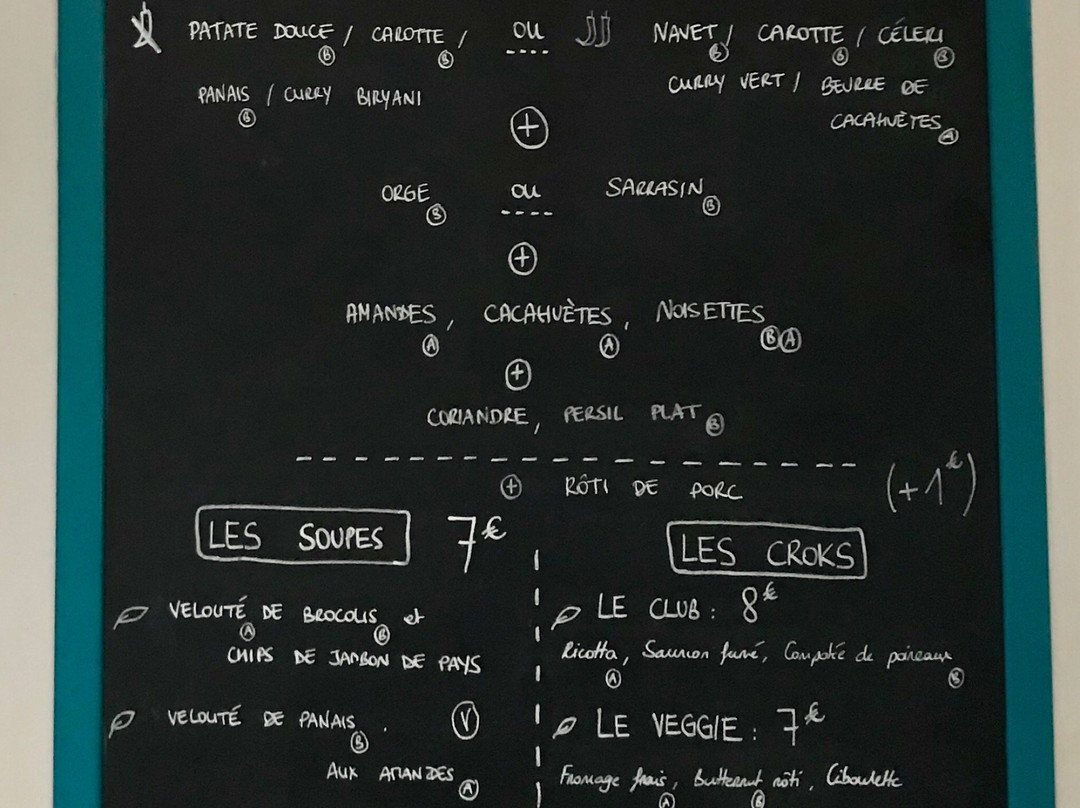 PATATE DOUCE / CAROTTE /
B B
PANAIS / CURRY BIRYANI
B
OU
NAVET / CAROTTE / CÉLERI
B B B
CURRY VERT / BEURRE DE
CACAHUÈTES
A
+
ORGE OU SARRASIN
B B
+
AMANDES, CACAHUÈTES, NOISETTES
A A B A
+
CORIANDRE, PERSIL PLAT
B
+ RÔTI DE PORC (+1€)
LES SOUPES 7€
VELOUTÉ DE BROCOLIS et
A B
CHIPS DE JAMBON DE PAYS
VELOUTÉ DE PANAIS. V
B
AUX AMANDES
A
LES CROKS
LE CLUB : 8€
Ricotta, Saumon fumé, Compotée de poireaux
A B
LE VEGGIE : 7€
Fromage frais, Butternut rôti, Ciboulette
A B